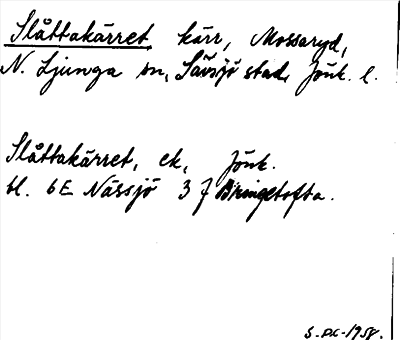 Slåttakärret, kärr, Mossaryd,
N. Ljunga sn, Sävsjö stad, Jönk. l.
Slåttakärret, ek, Jönk.
bl. 6E Nässjö 3 f Bringetofta.
1958.